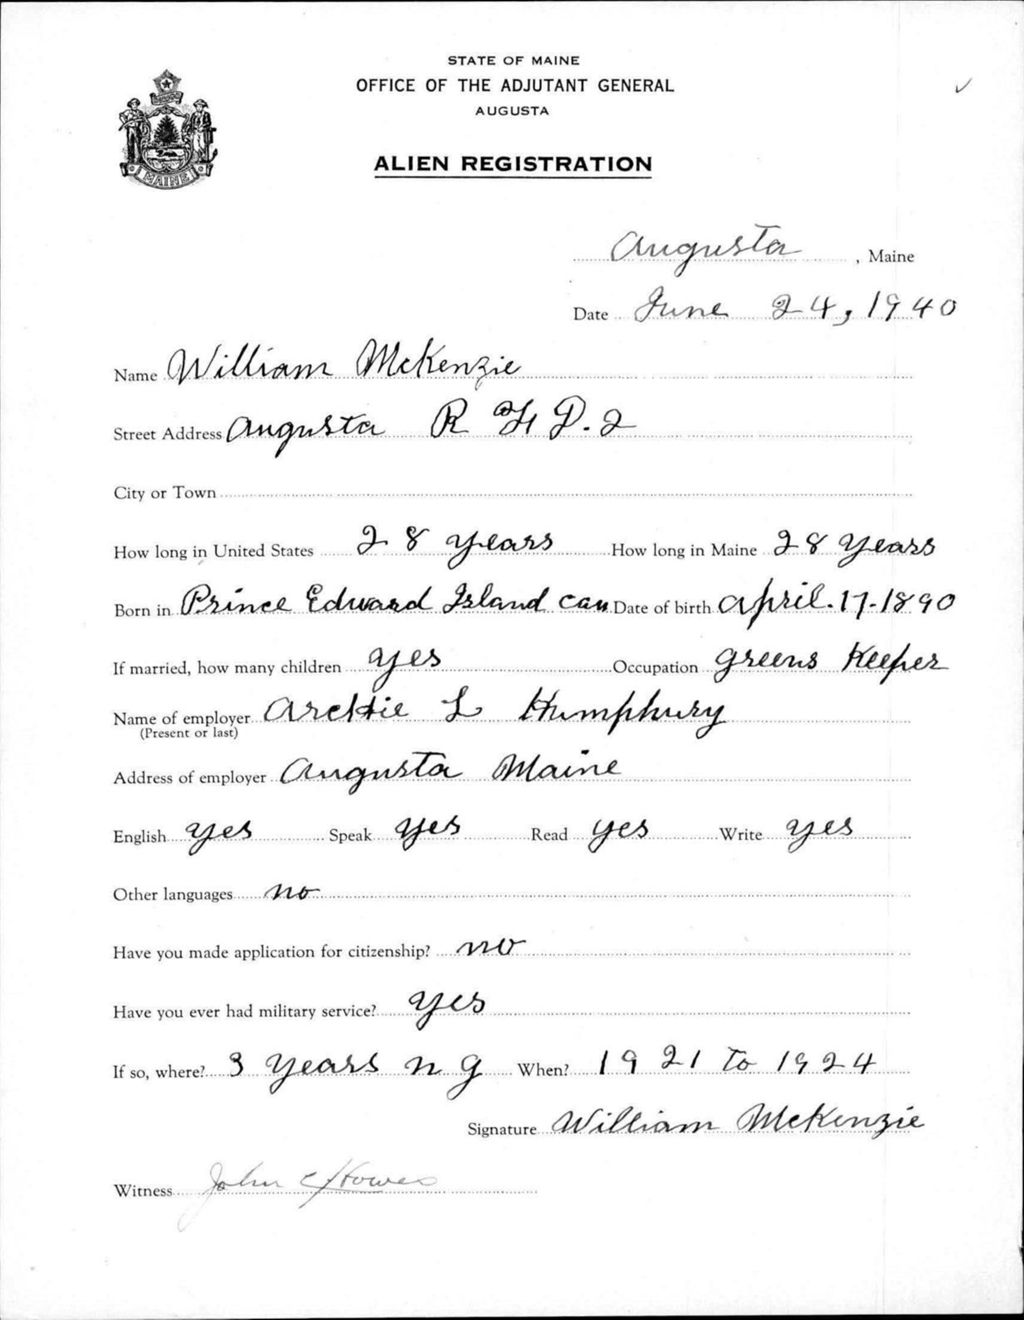 STATE OF MAINE
OFFICE OF THE ADJUTANT GENERAL
AUGUSTA
ALIEN REGISTRATION
MAINE
Augusta, Maine
Date June 24, 1940
Name William McKenzie
Street Address Augusta R F D. 2
City or Town
How long in United States 28 years How long in Maine 28 years
Born in Prince Edward Island Can Date of birth April. 17-1890
If married, how many children yes Occupation greens Keeper
Name of employer Archie L Humphury
(Present or last)
Address of employer Augusta Maine
English yes Speak yes Read yes Write yes
Other languages no
Have you made application for citizenship? no
Have you ever had military service? yes
If so, where? 3 years n g When? 1921 to 1924
Signature William McKenzie
Witness John C Howes